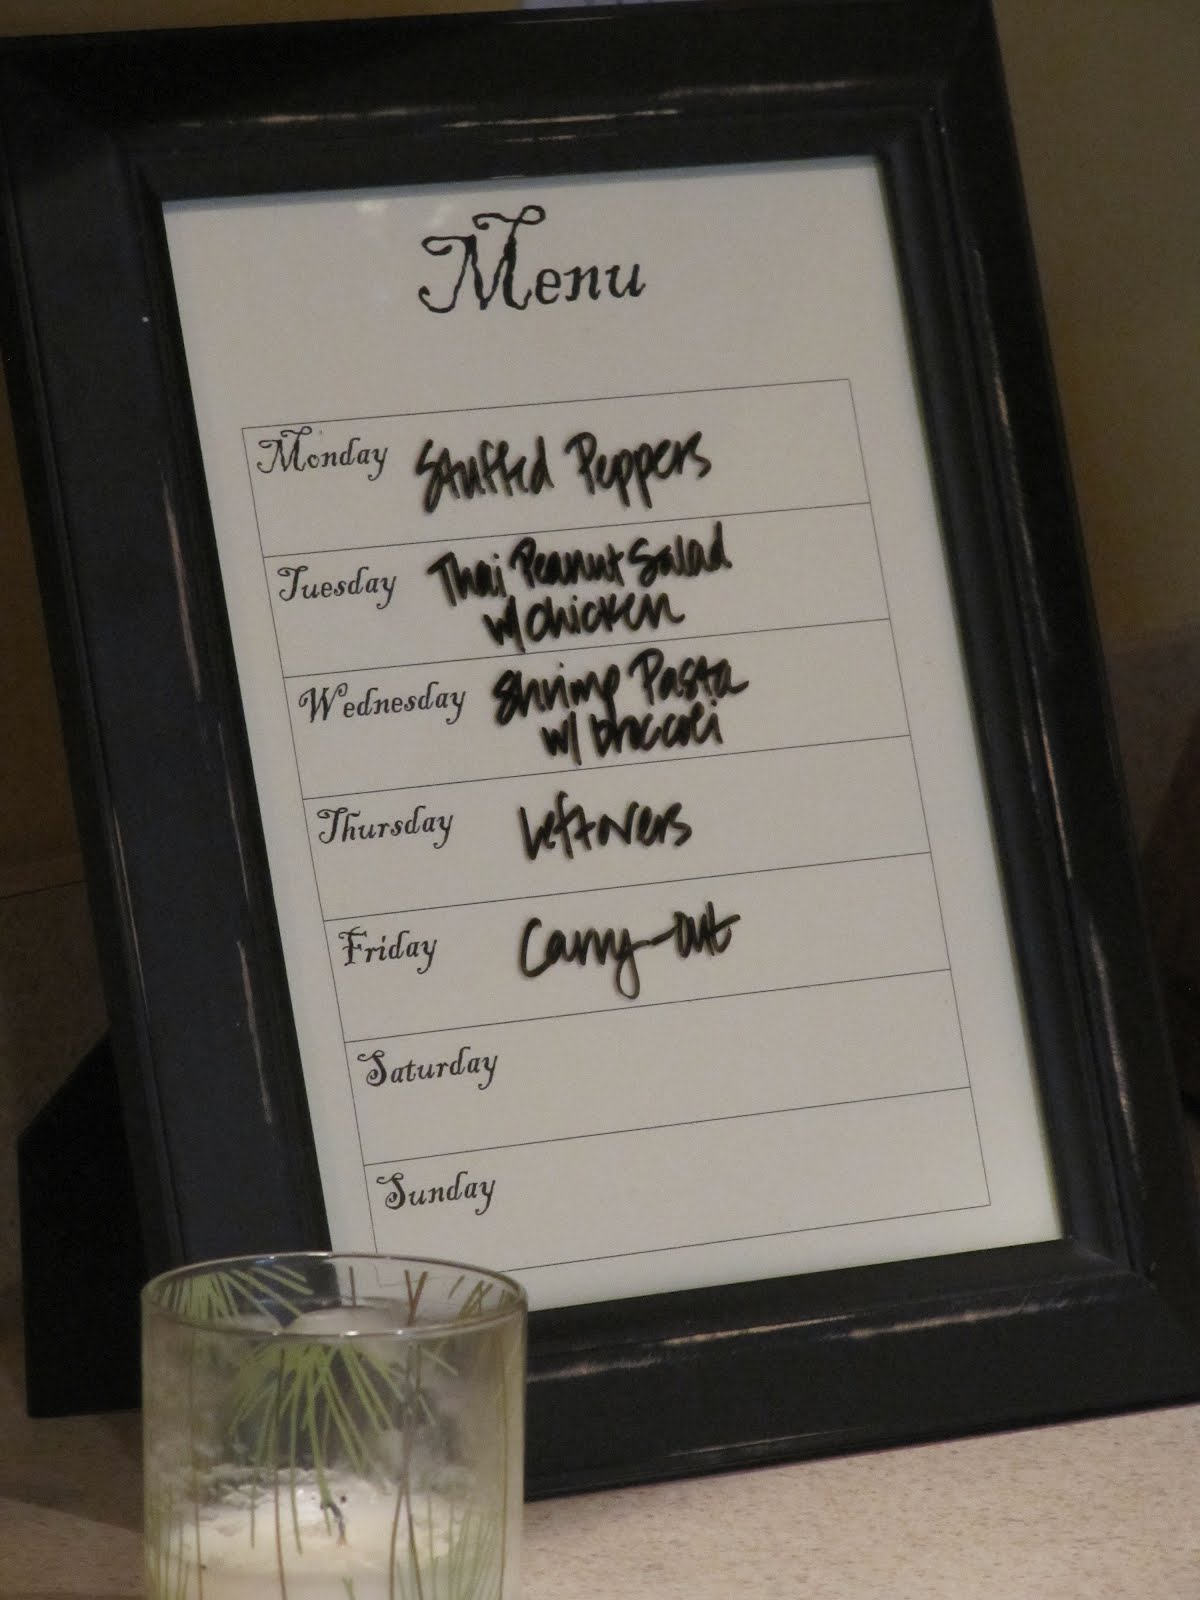 Menu
Monday Stuffed Peppers
Tuesday Thai Peanut Salad
w/ chicken
Wednesday Shrimp Pasta
w/ broccoli
Thursday Leftovers
Friday Carry-out
Saturday
Sunday